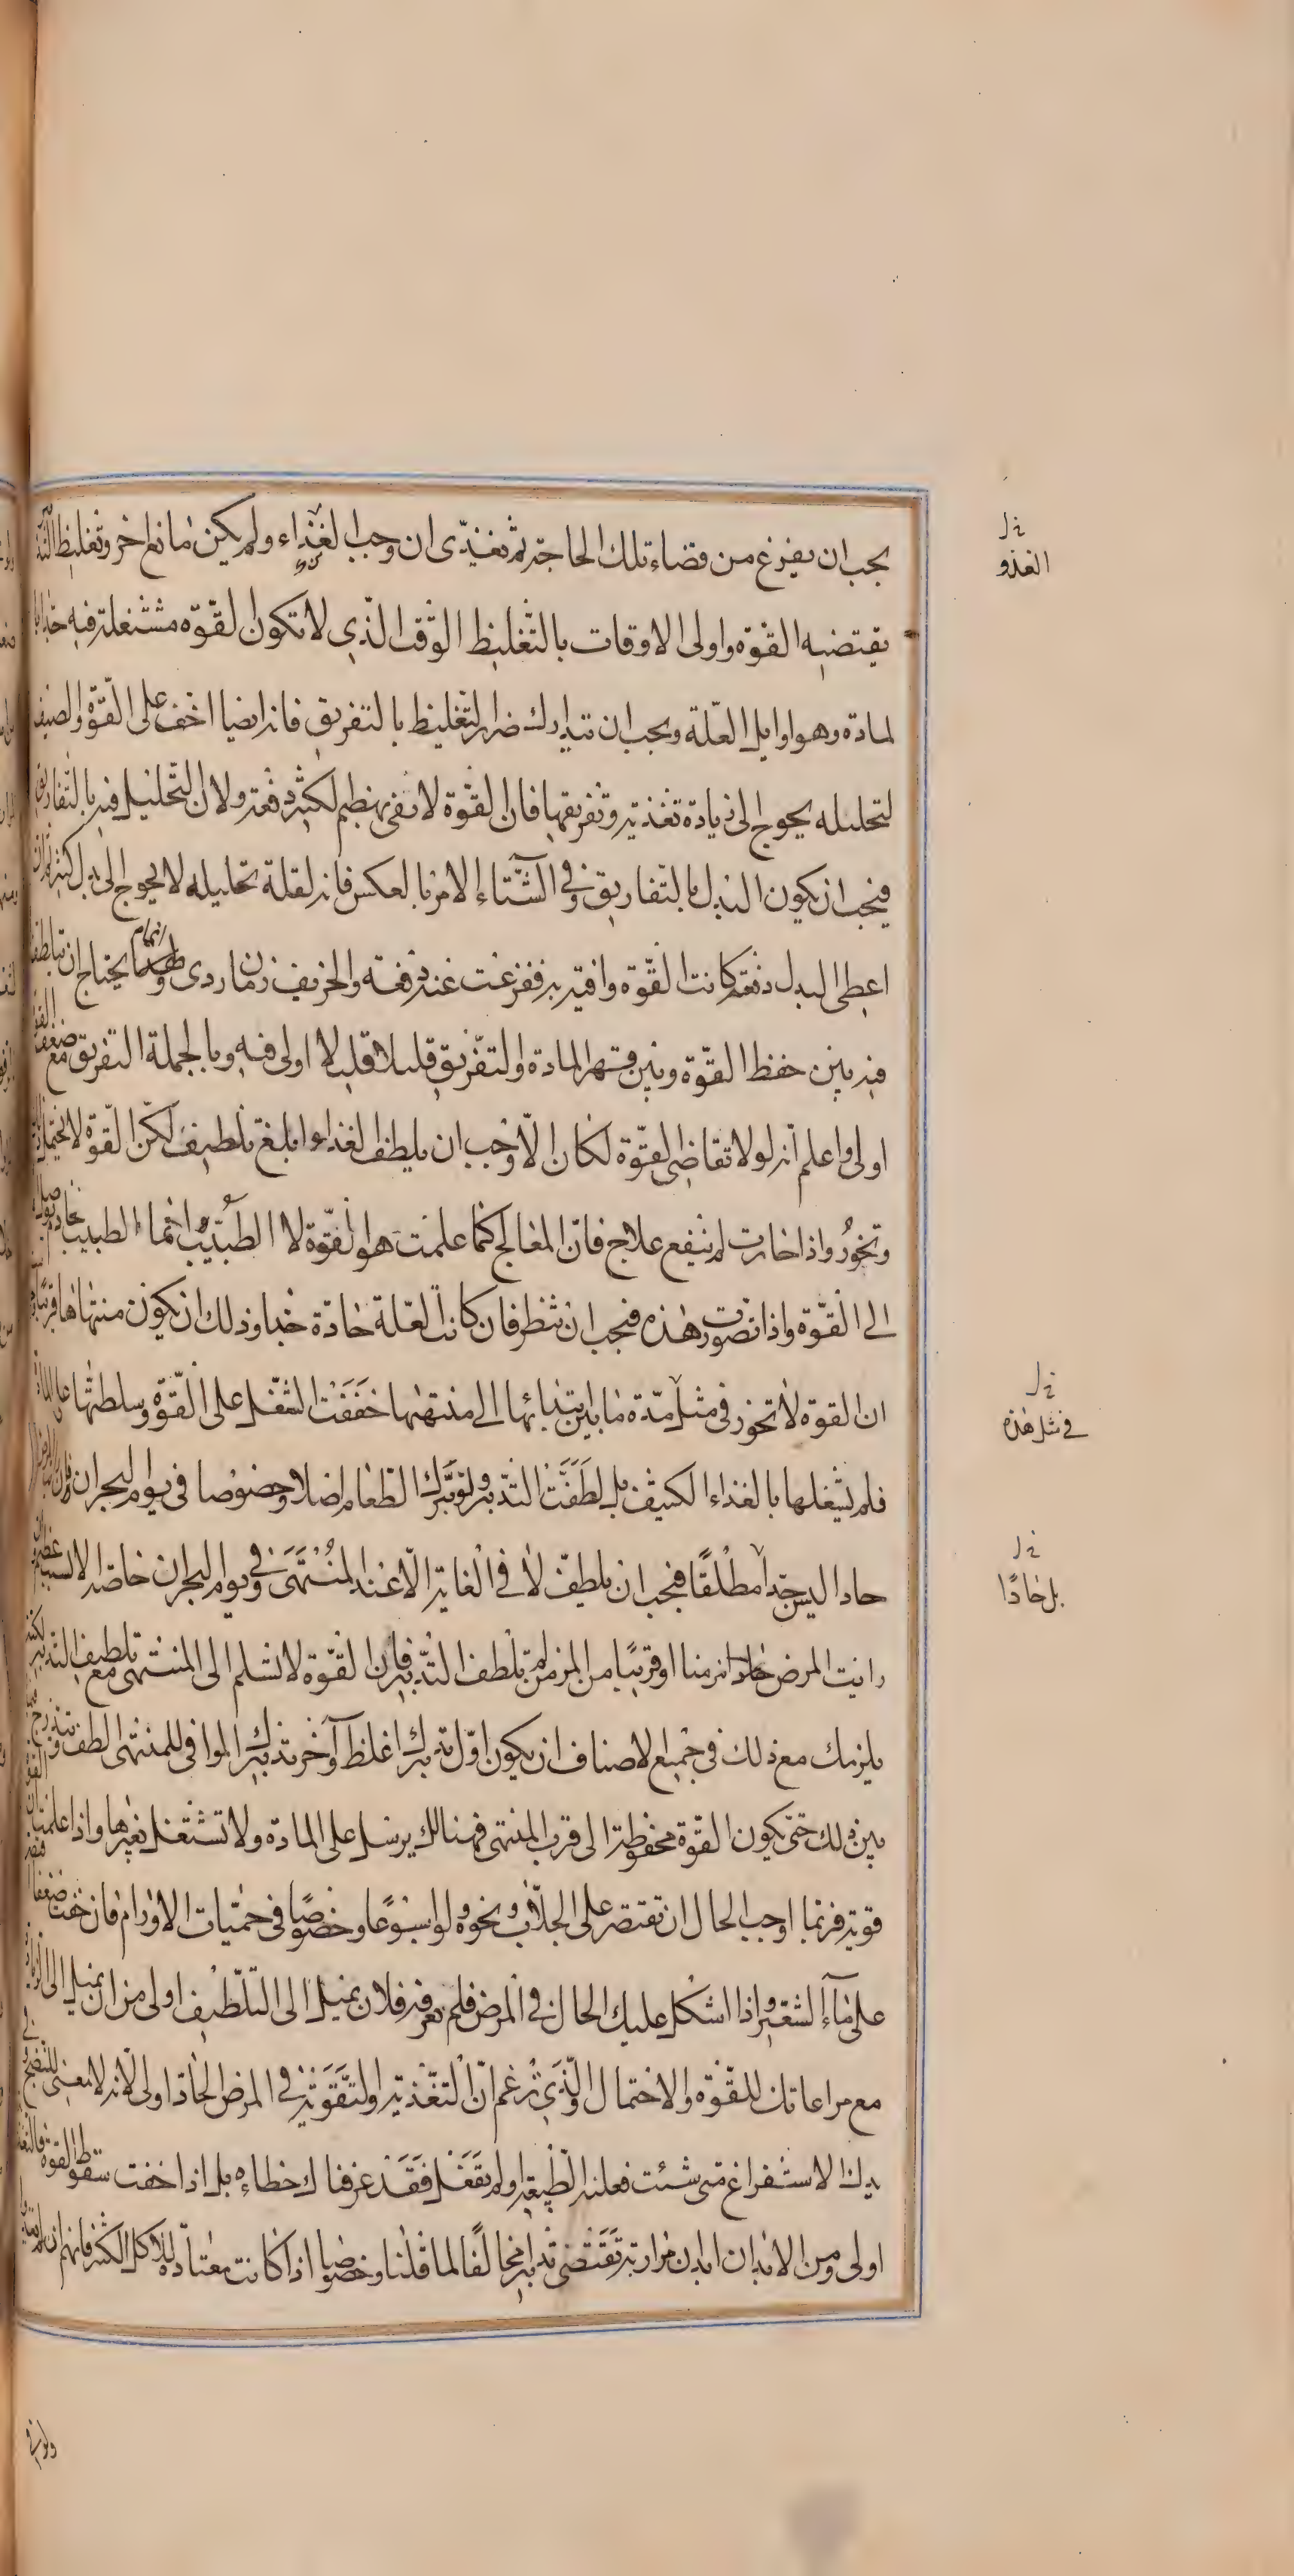 يجب ان يفرغ من قضاء تلك الحاجة ثم تغذى ان وجب الغذاء ولم يكن مانع اخر وتغليظ
خ ل
الغذو
يقتضيه القوة واولى الاوقات بالتغليظ الوقت الذي لا تكون القوة مشتغلة فيه جدا
لمادة وهو اوايل العلة ويجب ان تتدارك ضرر التغليظ بالتفريق فانه ايضا اخف على القوة والصيف
لتحليله يحوج الى زيادة تغذية وتفريقها فان القوة لا تفي بهضم لكثير دفعة ولان التحليل فيه بالتفاريق
فيجب ان يكون البدل بالتفاريق وفي الشتاء الامر بالعكس فانه لقلة تحليله لا يحوج الى بدل كثير
اعطى البدل دفعة كانت القوة وافية به ففرغت عنه دفعة والخريف زمان ردى يحتاج ان يتلطف
فيه بين حفظ القوة وبين قهر المادة والتفريق قليلا قليلا اولى فيه وبالجملة التفريق مع ضعف
اولى واعلم انه لولا تقاضى القوة لكان الاوجب ان يلطف الغذاء ابلغ تلطيف لكن القوة لا تحتمل
وتخور واذا خارت لم ينفع علاج فان المعالج كما علمت هو القوة لا الطبيب وانما الطبيب خادم
الى القوة واذا تصورت هذه فيجب ان تنظر فان كانت العلة حادة جدا وذلك ان يكون منتهاها قريبا
ان القوة لا تخور في مثل مدة ما بين ابتدائها الى منتهاها خففت الشغل على القوة وسلطتها على المادة
خ ل
في مثل هذه
فلم تشغلها بالغذاء الكثيف بل لطفت التدبير ولو بترك الطعام اصلا وخصوصا في يوم البحران
حادا ليس جدا مطلقا فيجب ان يلطف لا في الغاية الا عند المنتهى وفي يوم البحران خاصة الا لسبب عظيم
خ ل
بل حادا
رايت المرض مزمنا او قريبا من المزمن لم تلطف التدبير فان القوة لا تسلم الى المنتهى مع تلطيف التدبير
يلزمك مع ذلك في جميع الاصناف ان يكون اول تدبيرك اغلظ وآخر تدبيرك الموافى للمنتهى الطف وتتدرج
بين ذلك حتى تكون القوة محفوظة الى قرب المنتهى فهنالك يرسل على المادة ولا تشتغل بغيرها واذا علمت ان
قوية فربما اوجب الحال ان تقتصر على الجلاب ونحوه ولو اسبوعا وخصوصا في حميات الاورام فان خفت ضعفا
على ماء الشعير واذا اشكل عليك الحال في المرض فلم تعرفه فلان يميل الى التلطيف اولى من ان يميل الى الزيادة
مع مراعاتك للقوة والاحتمال والذي زعم ان التغذية والتقوية في المرض الحاد اولى لانه لا معنى للنضج
يدك الاستفراغ متى شئت فعلته الطبيعة او لم تفعل فقد عرفناك خطاءه بل اذا خفت سقوط القوة
اولى ومن الابدان ابدان مرارية تقتضى تدابير مخالفا لما قلنا وخصوصا اذا كانت معتادة للاكل الكثير فانهم